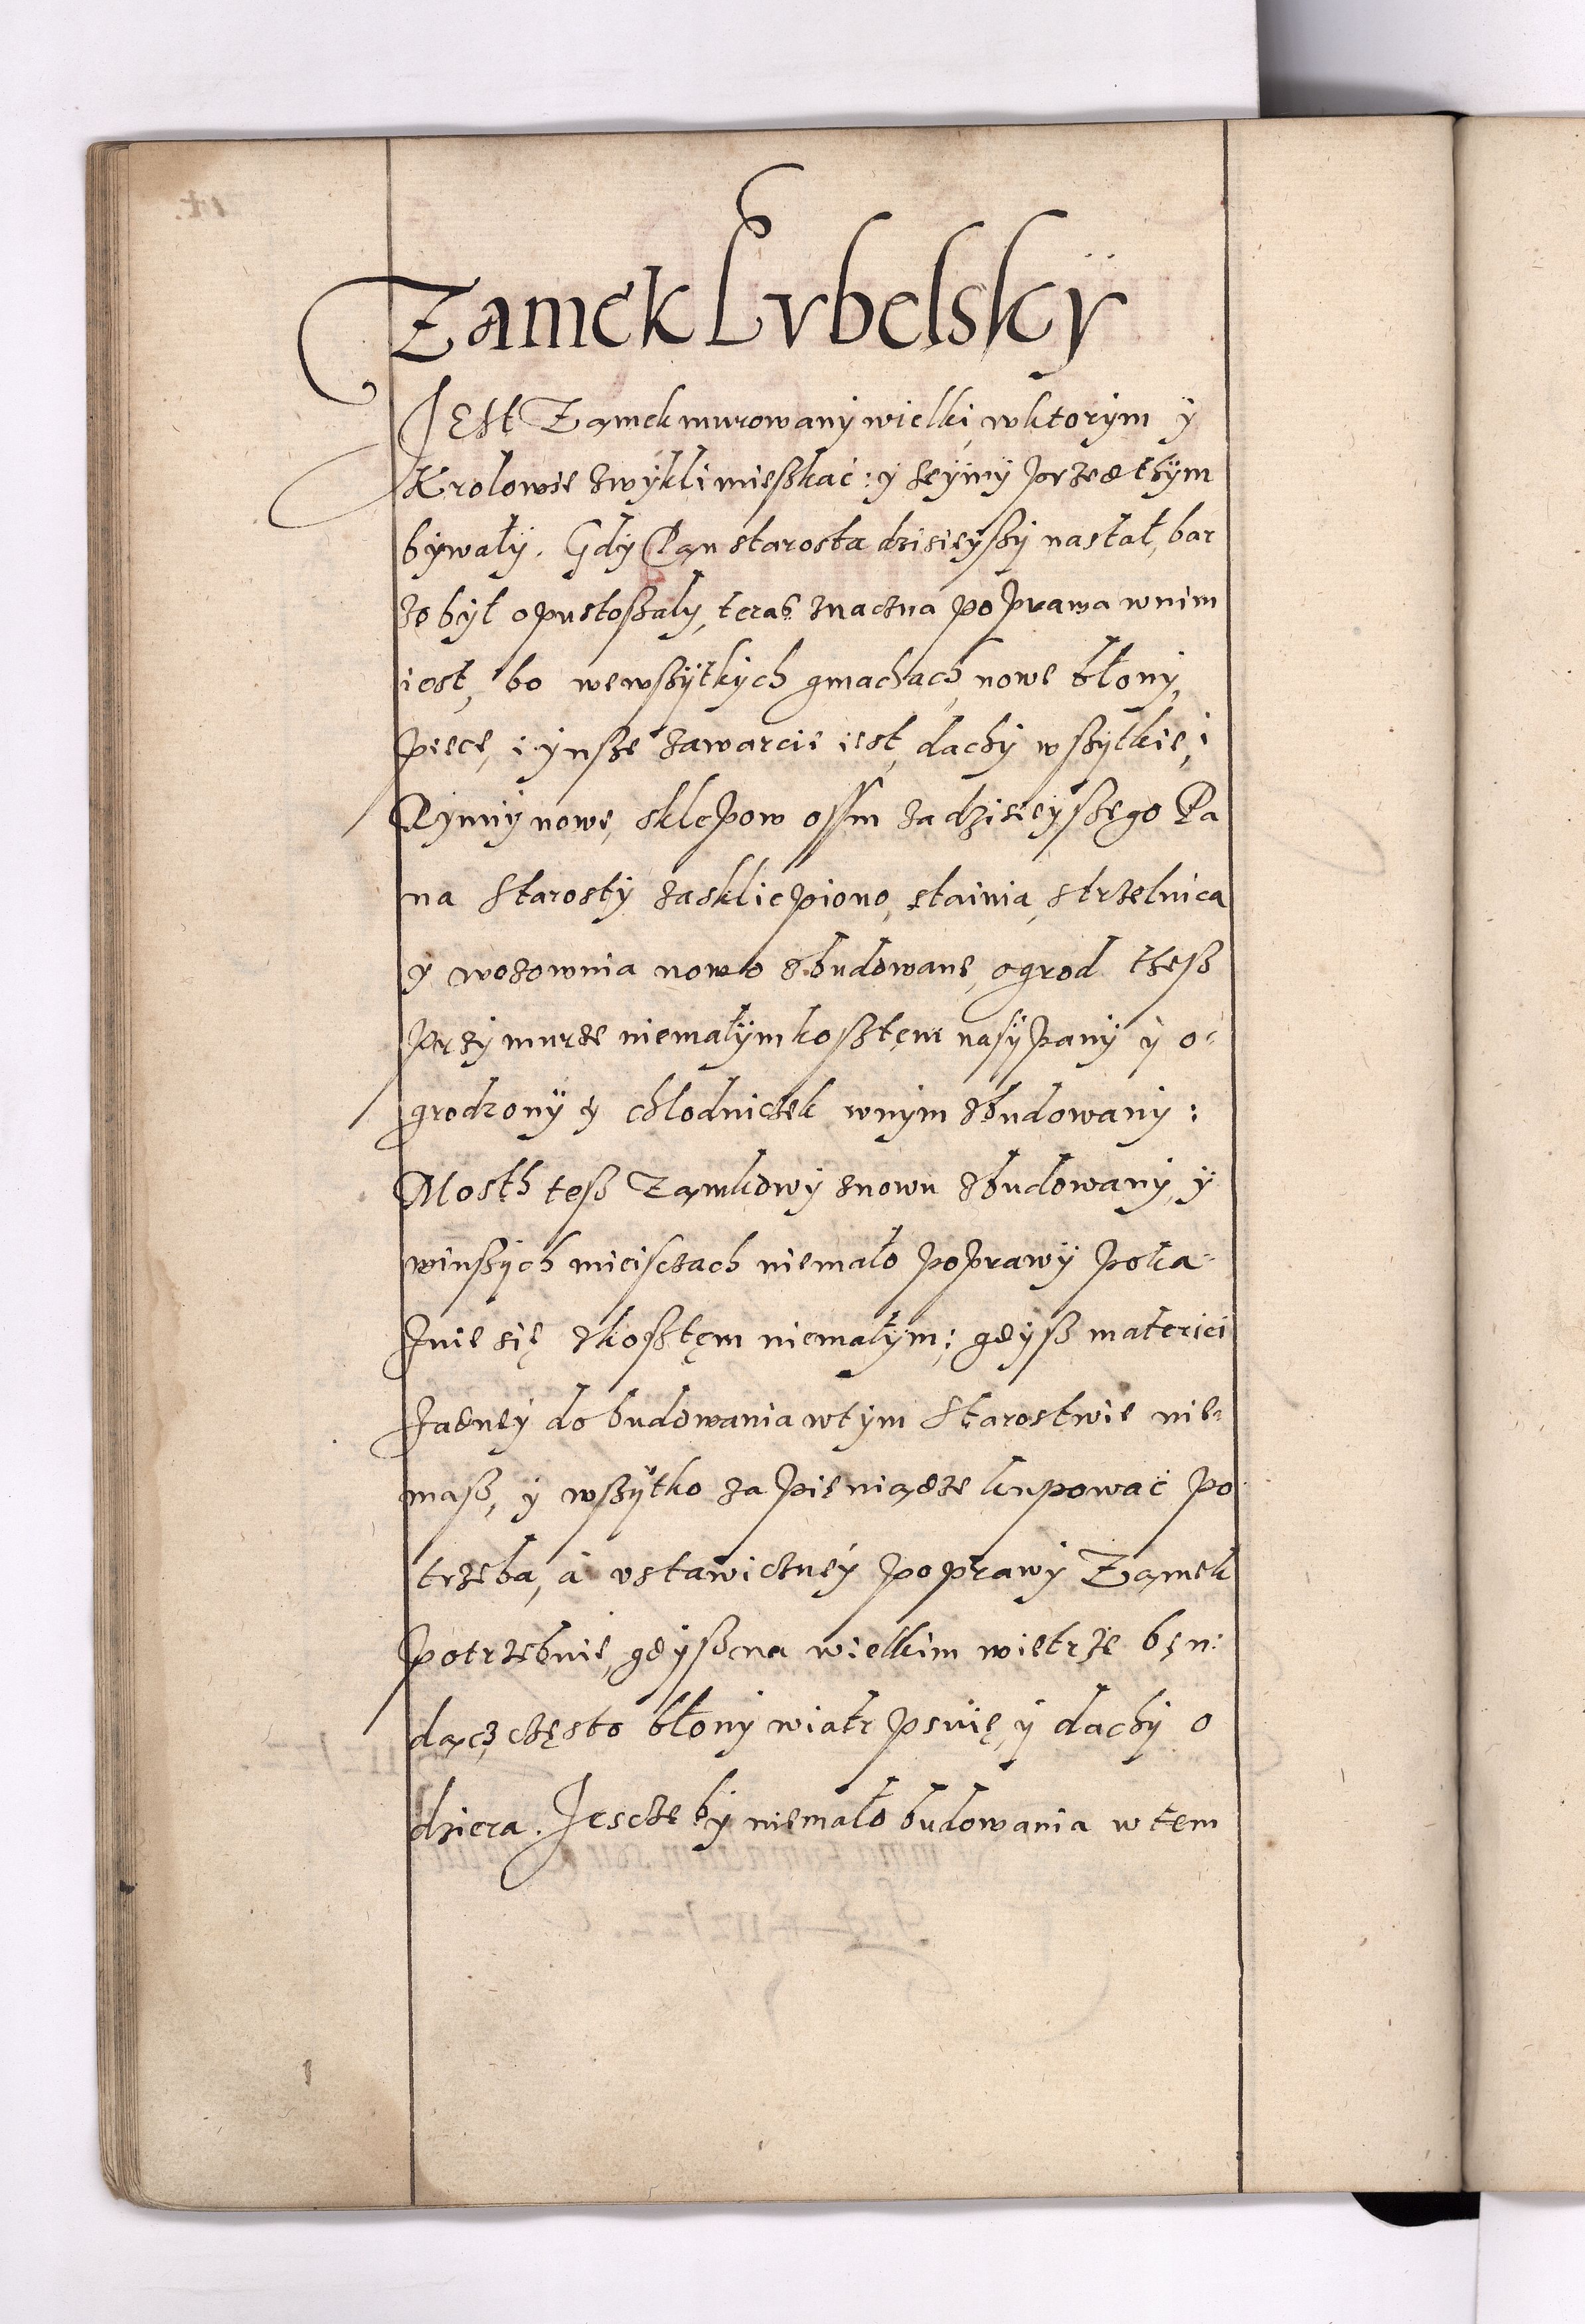 Zamek Lvbelskÿ
JEst Zamek murowanÿ wielki, wktorÿm ÿ
Krolowie zwÿkli mieszkać: ÿ seÿmÿ przedthÿm
bÿwałÿ. Gdÿ Pan starosta dzisieÿszÿ nastał, bar
zo bÿł opustoszałÿ, teras znaczna poprawa wnim
iest, bo wewszÿtkÿch gmachach, nowe błonÿ,
piece, i ÿnsze zawarcie iest, dachÿ wszÿtkie, i
Rÿnnÿ nowe, sklepow ossm za dzisieÿszego Pa
na Starostÿ zasklepiono, stainia, strzelnica
ÿ wozownia nowo zbudowane, ogrod thesz
przÿ murze niemałÿm kosztem nasÿpanÿ ÿ o-
grodzonÿ ÿ chłodniczek wnÿm zbudowanÿ:
Mosth tesz Zamkowÿ znowu zbudowanÿ, ÿ
winszÿch mieisczach niemało poprawÿ poka-
zuie się zkosztęm niemałÿm; gdÿsz materiei
żadneÿ do budowania wtÿm Starostwie nie-
masz, ÿ wszÿtko za pieniądze kupować po
trzeba, á vstawiczneÿ poprawÿ Zamek
potrzebuie, gdÿsz na wielkim wietrze bęn-
dącz, często błonÿ wiatr psuię, ÿ dachÿ o
dziera. Jescze bÿ niemało budowania w tem